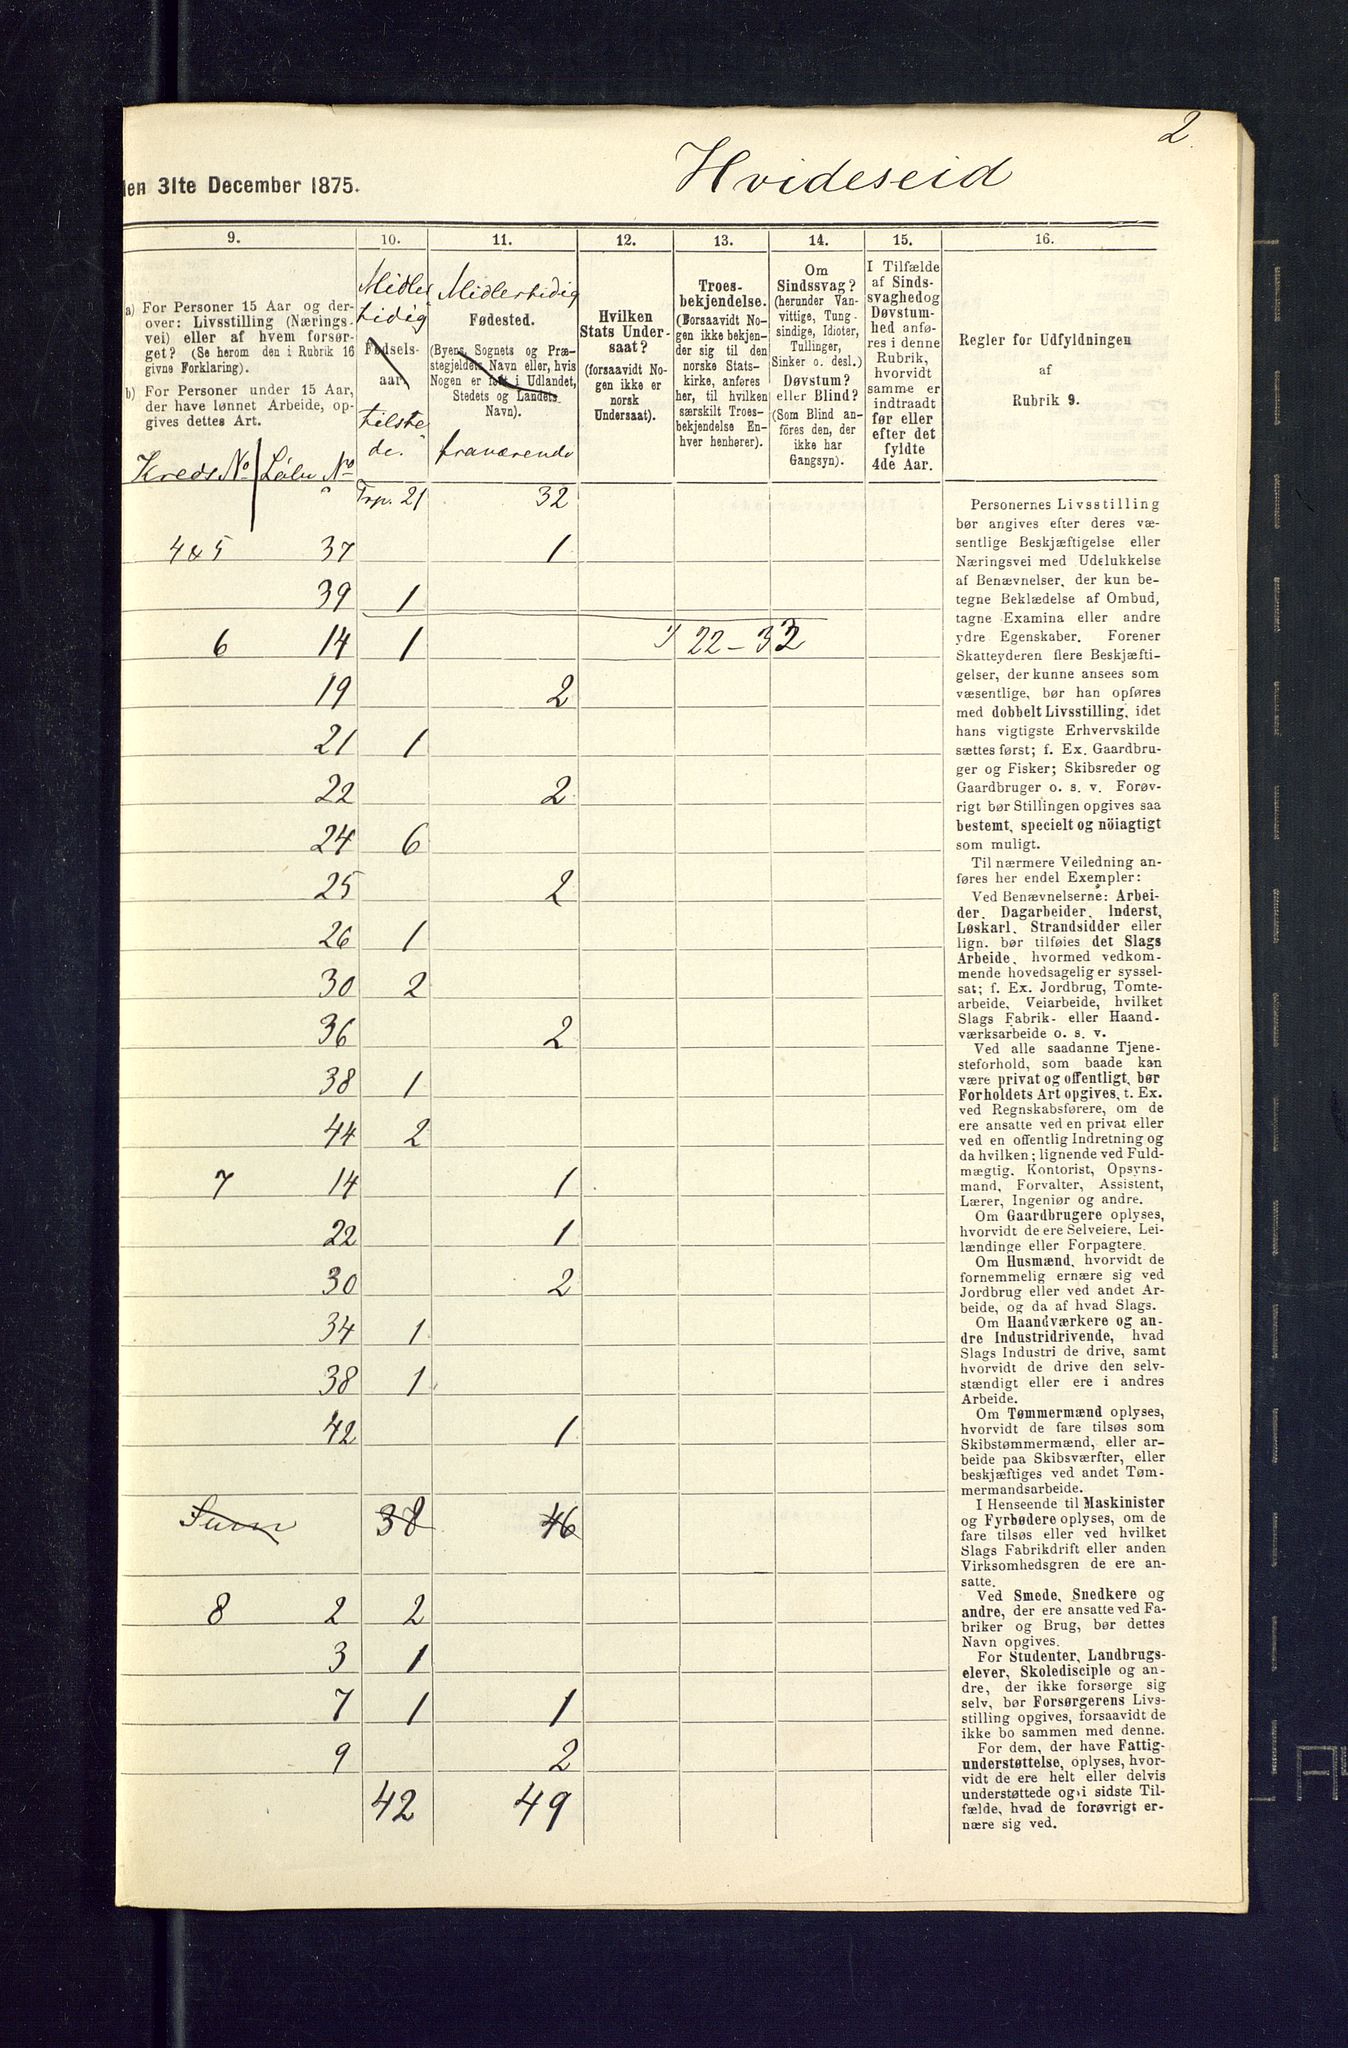 2.
den 31te December 1875.
Hvideseid
9.
10.
11.
12.
13.
14.
15.
16.
a) For Personer 15 Aar og der-
over: Livsstilling (Nærings-
vei) eller af hvem forsør-
get? (Se herom den i Rubrik 16
givne Forklaring).
b) For Personer under 15 Aar,
der have lønnet Arbeide, op-
gives dettes Art.
Kreds No Løbe No
Midler
tidig
Fødsels-
aar.
tilste
de.
Midlertidig
Fødested.
(Byens, Sognets og Præ-
stegjeldets Navn eller, hvis
Nogen er født i Udlandet,
Stedets og Landets
Navn).
fraværende
Hvilken
Stats Under-
saat?
(forsaavidt No-
gen ikke er
norsk
Undersaat).
Troes-
bekjendelse.
(Forsaavidt No-
gen ikke bekjen-
der sig til den
norske Stats-
kirke, anføres
her, til hvilken
særskilt Troes-
bekjendelse En-
hver henhører).
Om
Sindssvag?
(herunder Van-
vittige, Tung-
sindige, Idioter,
Tullinger,
Sinker o. desl.)
Døvstum?
eller Blind?
(Som Blind an-
føres den, der
ikke har
Gangsyn).
I Tilfælde
af Sinds-
svaghed og
Døvstum-
hed anfø-
res i denne
Rubrik,
hvorvidt
samme er
indtraadt
før eller
efter det
fyldte
4de Aar.
Regler for Udfyldningen
af
Rubrik 9.
Trp. 21 32
4 & 5 37 1
39 1
6 14 1 22 - 32
19 2
21 1
22 2
24 6
25 2
26 1
30 2
36 2
38 1
44 2
7 14 1
22 1
30 2
34 1
38 1
42 1
Sum 38 46
8 2 2
3 1
7 1 1
9 2
42 49
Personernes Livsstilling
bør angives efter deres væ-
sentlige Beskjæftigelse eller
Næringsvei med Udelukkelse
af Benævnelser, der kun be-
tegne Beklædelse af Ombud,
tagne Examina eller andre
ydre Egenskaber. Forener
Skatteyderen flere Beskjæfti-
gelser, der kunne ansees som
væsentlige, bør han opføres
med dobbelt Livsstilling, idet
hans vigtigste Erhvervskilde
sættes først; f. Ex. Gaardbru-
ger og Fisker; Skibsreder og
Gaardbruger o. s. v. Forøv-
rigt bør Stillingen opgives saa
bestemt, specielt og nöiagtigt
som muligt.
Til nærmere Veiledning an-
føres her endel Exempler:
Ved Benævnelserne: Arbei-
der, Dagarbeider, Inderst,
Løskarl, Strandsidder eller
lign. bør tilføies det Slags
Arbeide, hvormed vedkom-
mende hovedsagelig er syssel-
sat; f. Ex. Jordbrug, Tomte-
arbeide, Veiarbeide, hvilket
Slags Fabrik- eller Haand-
værksarbeide o. s. v.
Ved alle saadanne Tjene-
steforhold, som baade kan
være privat og offentligt, bør
Forholdets Art opgives, t. Ex.
ved Regnskabsførere, om de
ere ansatte ved en privat eller
ved en offentlig Indretning og
da hvilken; lignende ved Fuld-
mægtig, Kontorist, Opsyns-
mand, Forvalter, Assistent,
Lærer, Ingeniør og andre.
Om Gaardbrugere oplyses,
hvorvidt de ere Selveiere, Lei-
lændinge eller Forpagtere.
Om Husmænd, hvorvidt de
fornemmelig ernære sig ved
Jordbrug eller ved andet Ar-
beide, og da af hvad Slags.
Om Haandværkere og an-
dre Industridrivende, hvad
Slags Industri de drive, samt
hvorvidt de drive den selv-
stændigt eller ere i andres
Arbeide.
Om Tømmermænd oplyses,
hvorvidt de fare tilsøs som
Skibstømmermænd, eller ar-
beide paa Skibsværfter, eller
beskjæftiges ved andet Tøm-
mermandsarbeide.
I Henseende til Maskinister
og Fyrbødere oplyses, om de
fare tilsøs eller ved hvilket
Slags Fabrikdrift eller anden
Virksomhedsgren de ere an-
satte.
Ved Smede, Snedkere og
andre, der ere ansatte ved Fa-
briker og Brug, bør dettes
Navn opgives.
For Studenter, Landbrugs-
elever, Skoledisciple og an-
dre, der ikke forsørge sig
selv, bør Forsørgerens Livs-
stilling opgives, forsaavidt de
ikke bo sammen med denne.
For dem, der have Fattig-
understøttelse, oplyses, hvor-
vidt de ere helt eller delvis
understøttede og i sidste Til-
fælde, hvad de forøvrigt er-
nære sig ved.